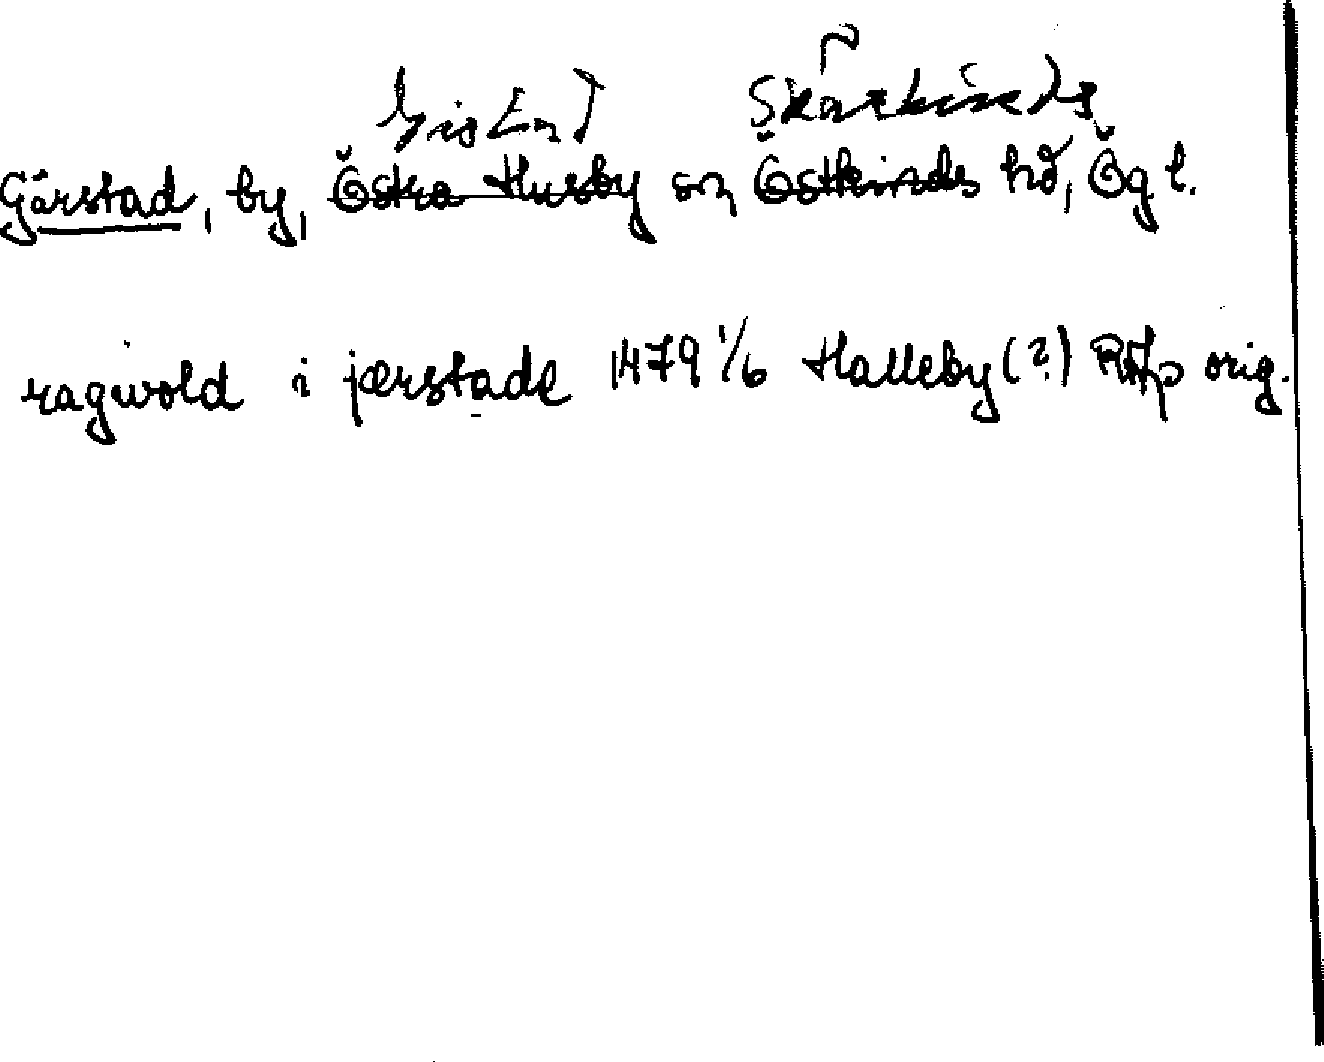 Gistad Skärkinds
Gärstad, by, Östra Husby sn Östkinds hd, Ög l.
ragwold i jærstade 1479 1/6 Halleby (?) RAp orig.